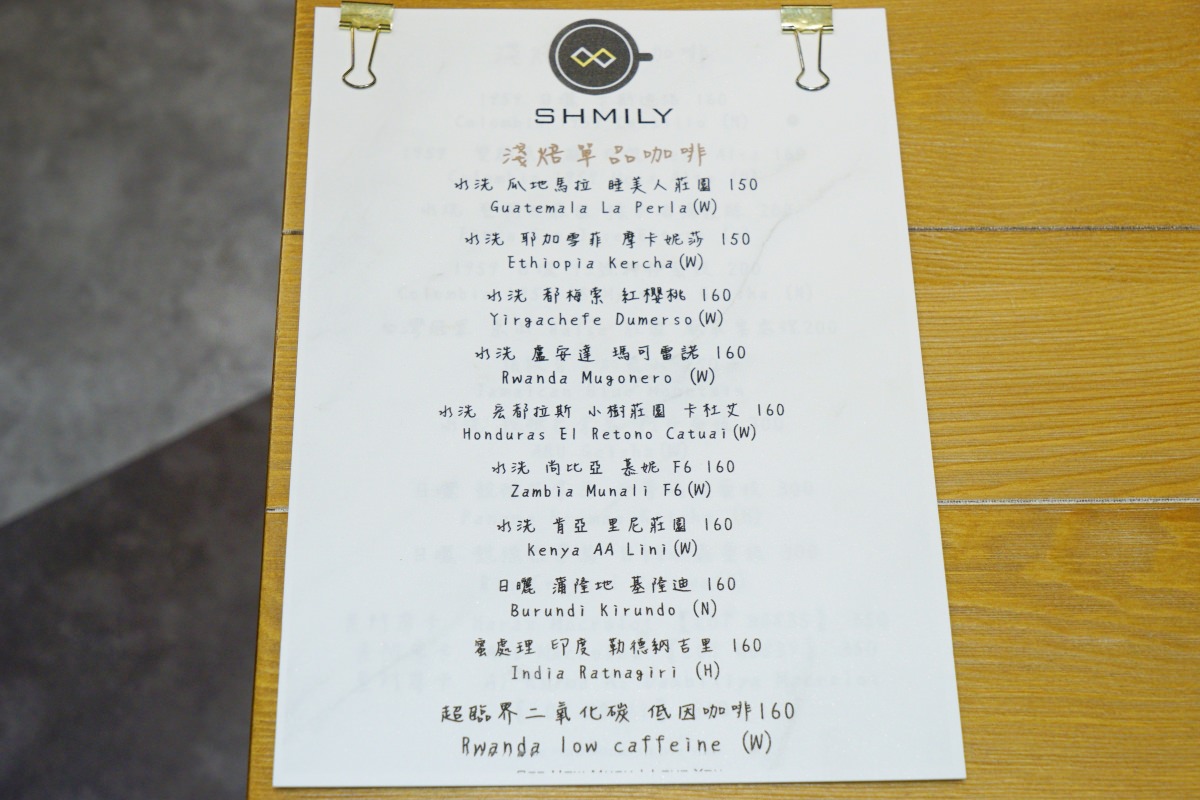 SHMILY
淺焙單品咖啡
水洗 瓜地馬拉 睡美人莊園 150
Guatemala La Perla(W)
水洗 耶加雪菲 摩卡妮莎 150
Ethiopia Kercha(W)
水洗 都梅索 紅櫻桃 160
Yirgachefe Dumerso(W)
水洗 盧安達 瑪可雷諾 160
Rwanda Mugonero (W)
水洗 宏都拉斯 小樹莊園 卡杜艾 160
Honduras El Retono Catuai(W)
水洗 尚比亞 慕妮 F6 160
Zambia Munali F6(W)
水洗 肯亞 里尼莊園 160
Kenya AA Lini(W)
日曬 蒲隆地 基隆迪 160
Burundi Kirundo (N)
蜜處理 印度 勒德納吉里 160
India Ratnagiri (H)
超臨界二氧化碳 低因咖啡160
Rwanda low caffeine (W)